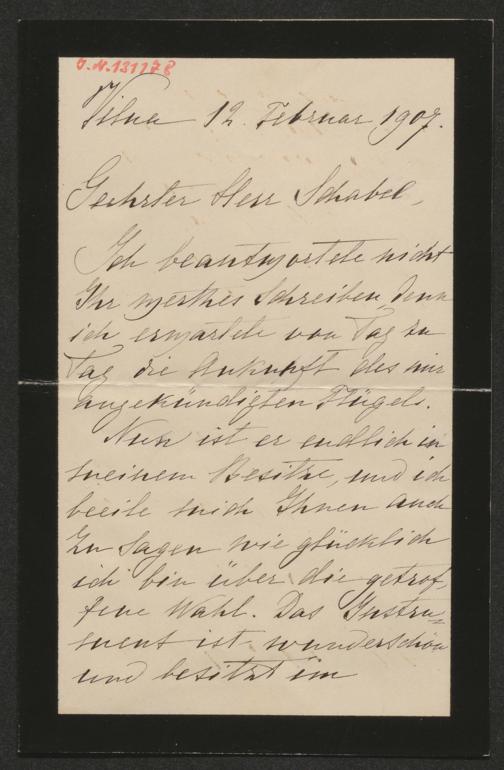 J.N.131178
Vilna 12. Februar 1907.
Geehrter Herr Schabel,
Ich beantwortete nicht
Ihr werthes Schreiben, denn
ich erwartete von Tag zu
Tag die Ankunft des mir
angekündigten Flügels.
Nun ist er endlich in
meinem Besitze, und ich
beeile mich Ihnen auch
zu sagen wie glücklich
ich bin über die getrof-
fene Wahl. Das Instru=
ment ist wunderschön
und besitzt im